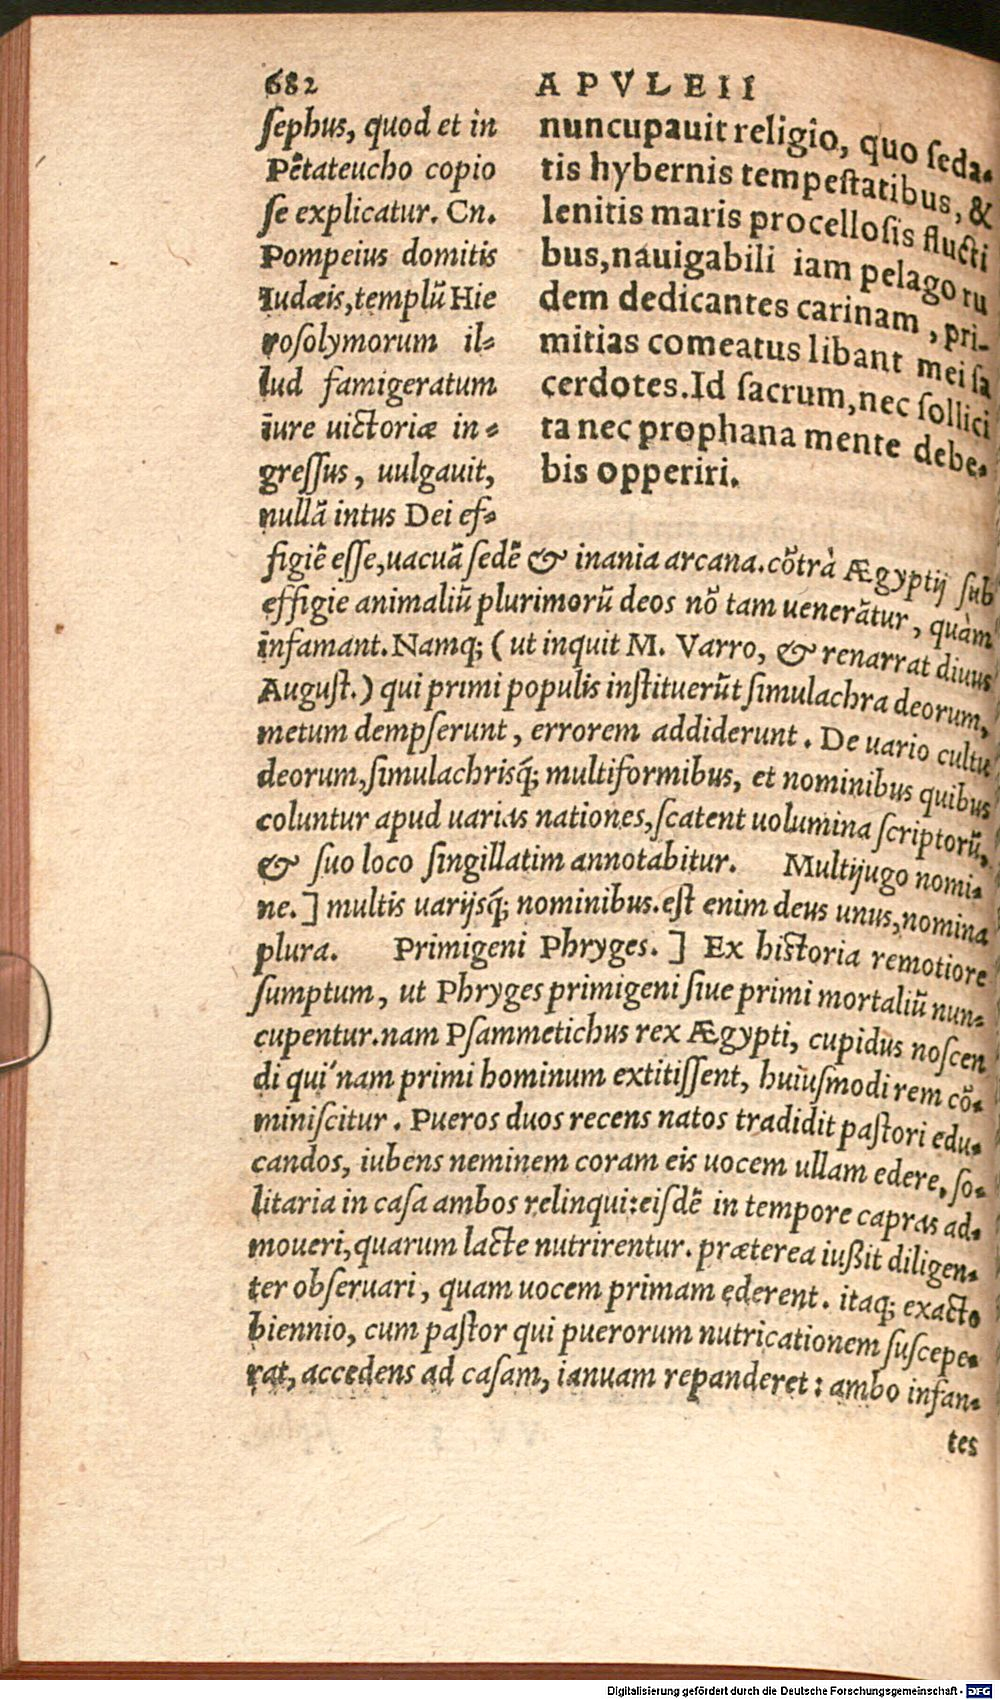 682
APVLEII
sephus, quod et in
Pẽtateucho copio
se explicatur. Cn.
Pompeius domitis
Iudæis, templũ Hie
rosolymorum il-
lud famigeratum
iure uictoriæ in-
gressus, uulgauit,
nullã intus Dei ef-
nuncupauit religio, quo seda-
tis hybernis tempestatibus, &
lenitis maris procellosis flucti
bus, nauigabili iam pelago ru
dem dedicantes carinam, pri-
mitias comeatus libant mei sa
cerdotes. Id sacrum, nec sollici
ta nec prophana mente debe-
bis opperiri.
figiẽ esse, uacuã sedẽ & inania arcana. cõtrà Ægyptij sub
effigie animaliũ plurimorũ deos nõ tam uenerãtur, quàm
infamant. Namq; ( ut inquit M. Varro, & renarrat diuus
August. ) qui primi populis instituerũt simulachra deorum,
metum dempserunt, errorem addiderunt. De uario cultu
deorum, simulachrisq́; multiformibus, et nominibus quibus
coluntur apud uarias nationes, scatent uolumina scriptorũ,
& suo loco singillatim annotabitur. Multijugo nomi-
ne. ] multis uarijsq́; nominibus. est enim deus unus, nomina
plura. Primigeni Phryges. ] Ex historia remotiore
sumptum, ut Phryges primigeni siue primi mortaliũ nun-
cupentur. nam Psammetichus rex Ægypti, cupidus noscen
di qui'nam primi hominum extitissent, huiusmodi rem cõ-
miniscitur. Pueros duos recens natos tradidit pastori edu-
candos, iubens neminem coram eis uocem ullam edere, so-
litaria in casa ambos relinqui: eisdẽ in tempore capras ad-
moueri, quarum lacte nutrirentur. præterea iußit diligen-
ter obseruari, quam uocem primam ederent. itaq; exacto
biennio, cum pastor qui puerorum nutricationem suscepe-
rat, accedens ad casam, ianuam repanderet: ambo infan-
tes
Digitalisierung gefördert durch die Deutsche Forschungsgemeinschaft - DFG